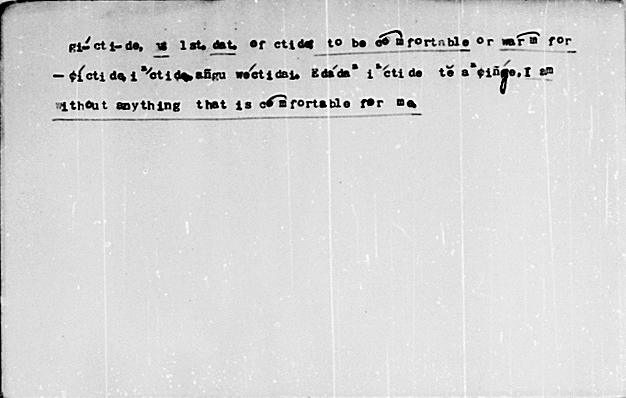 gi-́cti-de, vs 1st. dat. of ctide; to be comfortable or warm for
— ¢íctide, iⁿ́ctide, añgu wéctidai. Edádaⁿ iⁿ́ctide tĕ aⁿ¢iñge, I am
without anything that is comfortable for me.